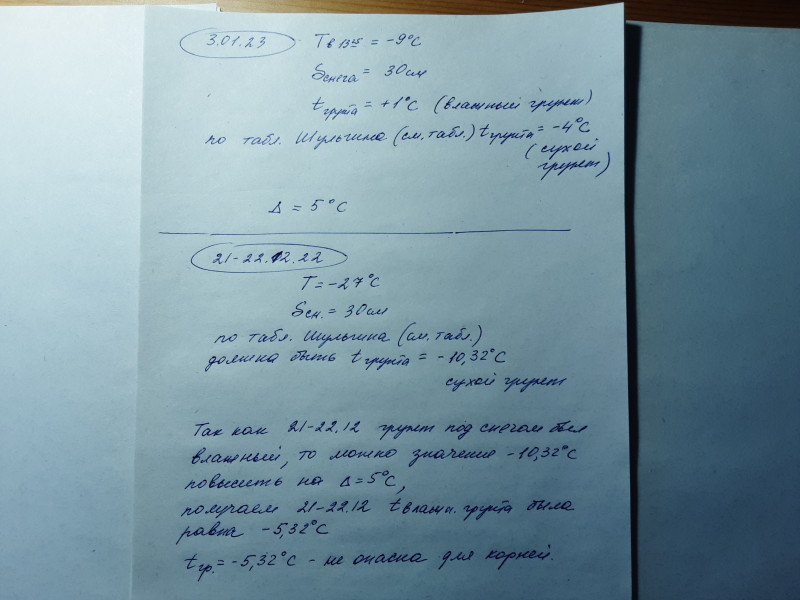 3.01.23 Tв 13 15 = -9°C
Sснега = 30см
tгрунта = +1°C (влажный грунт)
по табл. Шульгина (см. табл.) tгрунта = -4°C
(сухой
грунт)
Δ = 5°C
21-22.12.22
T = -27°C
Sсн. = 30см
по табл. Шульгина (см. табл.)
должна быть tгрунта = -10,32°C
сухой грунт
Так как 21-22.12 грунт под снегом был
влажный, то можно значение -10,32°C
повысить на Δ = 5°C,
получаем 21-22.12 tвлажн. грунта была
равна -5,32°C
tгр. = -5,32°C - не опасна для корней.